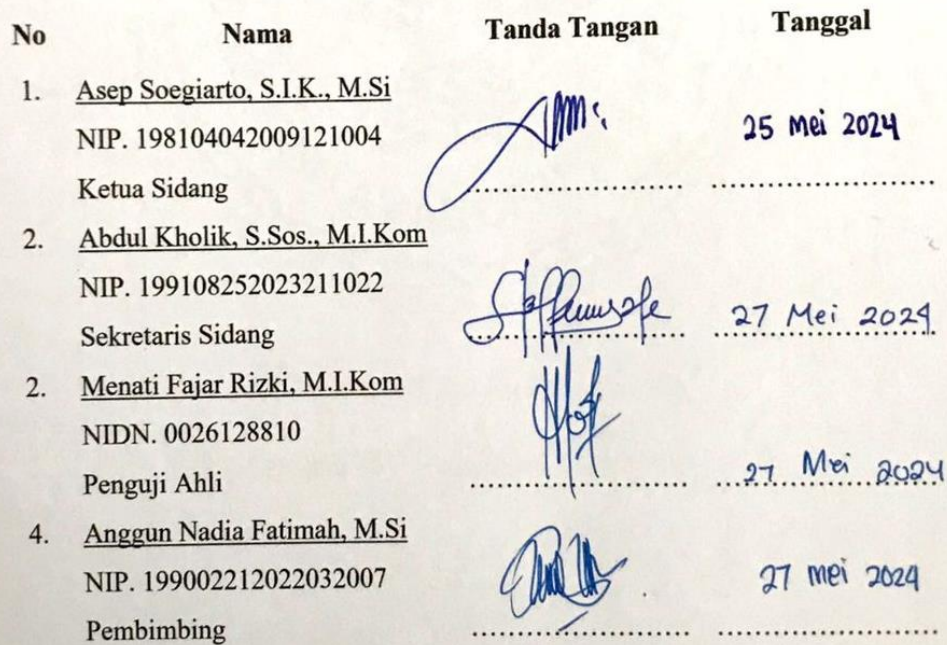 No Nama Tanda Tangan Tanggal
1. Asep Soegiarto, S.I.K., M.Si
NIP. 198104042009121004 25 Mei 2024
Ketua Sidang
2. Abdul Kholik, S.Sos., M.I.Kom
NIP. 199108252023211022
Sekretaris Sidang 27 Mei 2024
2. Menati Fajar Rizki, M.I.Kom
NIDN. 0026128810
Penguji Ahli 27 Mei 2024
4. Anggun Nadia Fatimah, M.Si
NIP. 199002212022032007 27 Mei 2024
Pembimbing